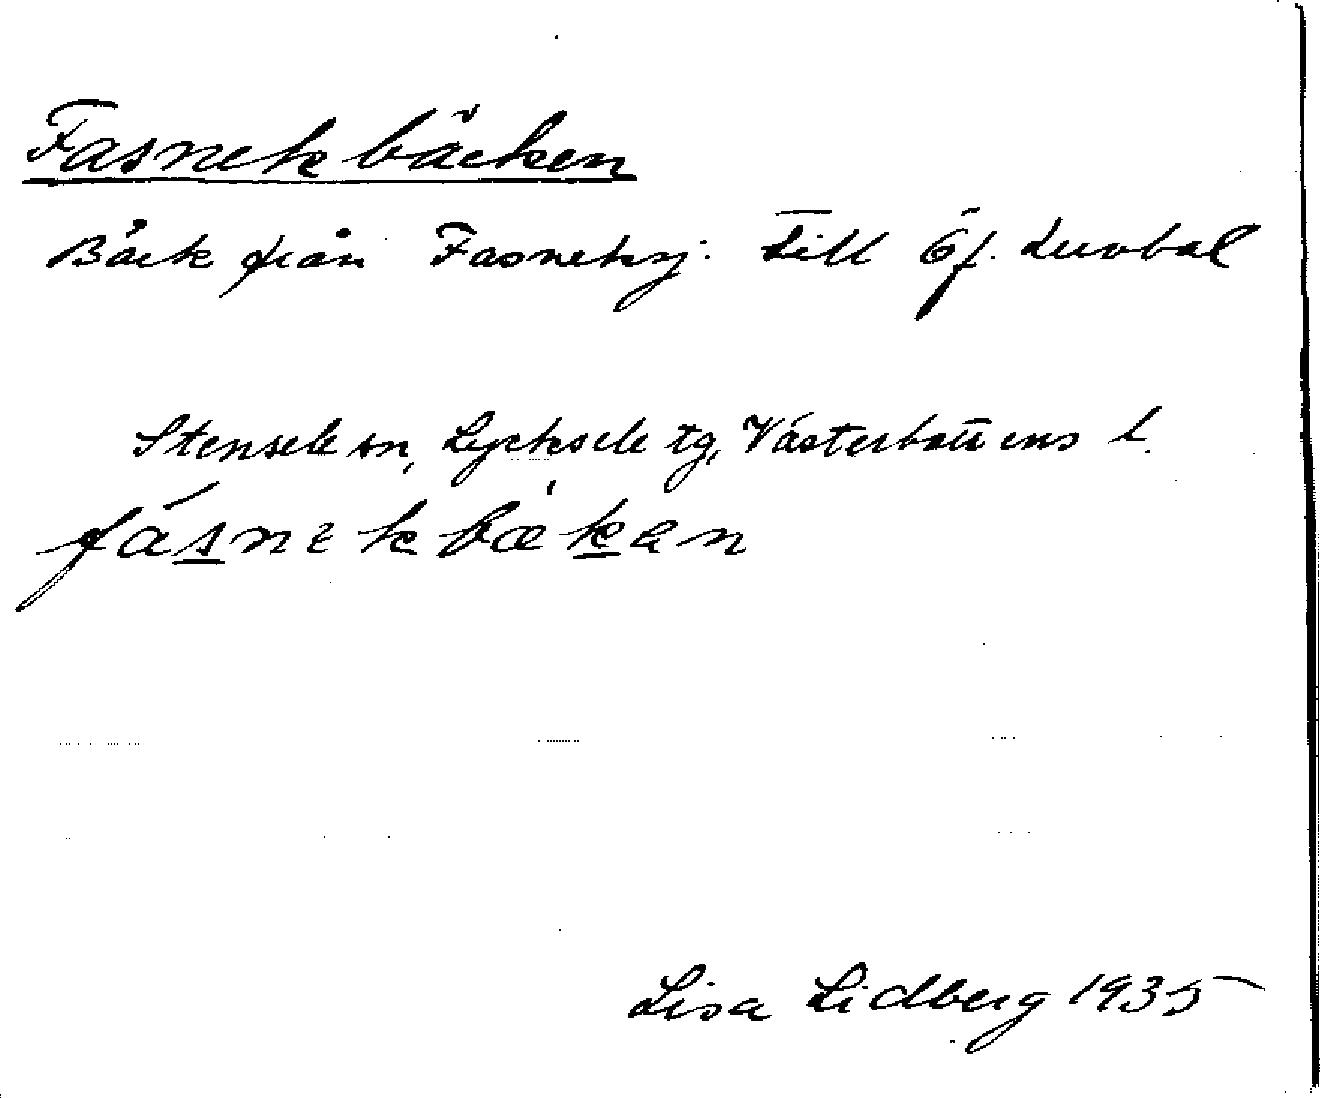 Fasnekbäcken
Bäck från Fasneksj. Till Öf. Luvbal
Stensele sn, Lycksele tg, Västerbottens l.
fásnɛkbækan
Lisa Lidberg 1935